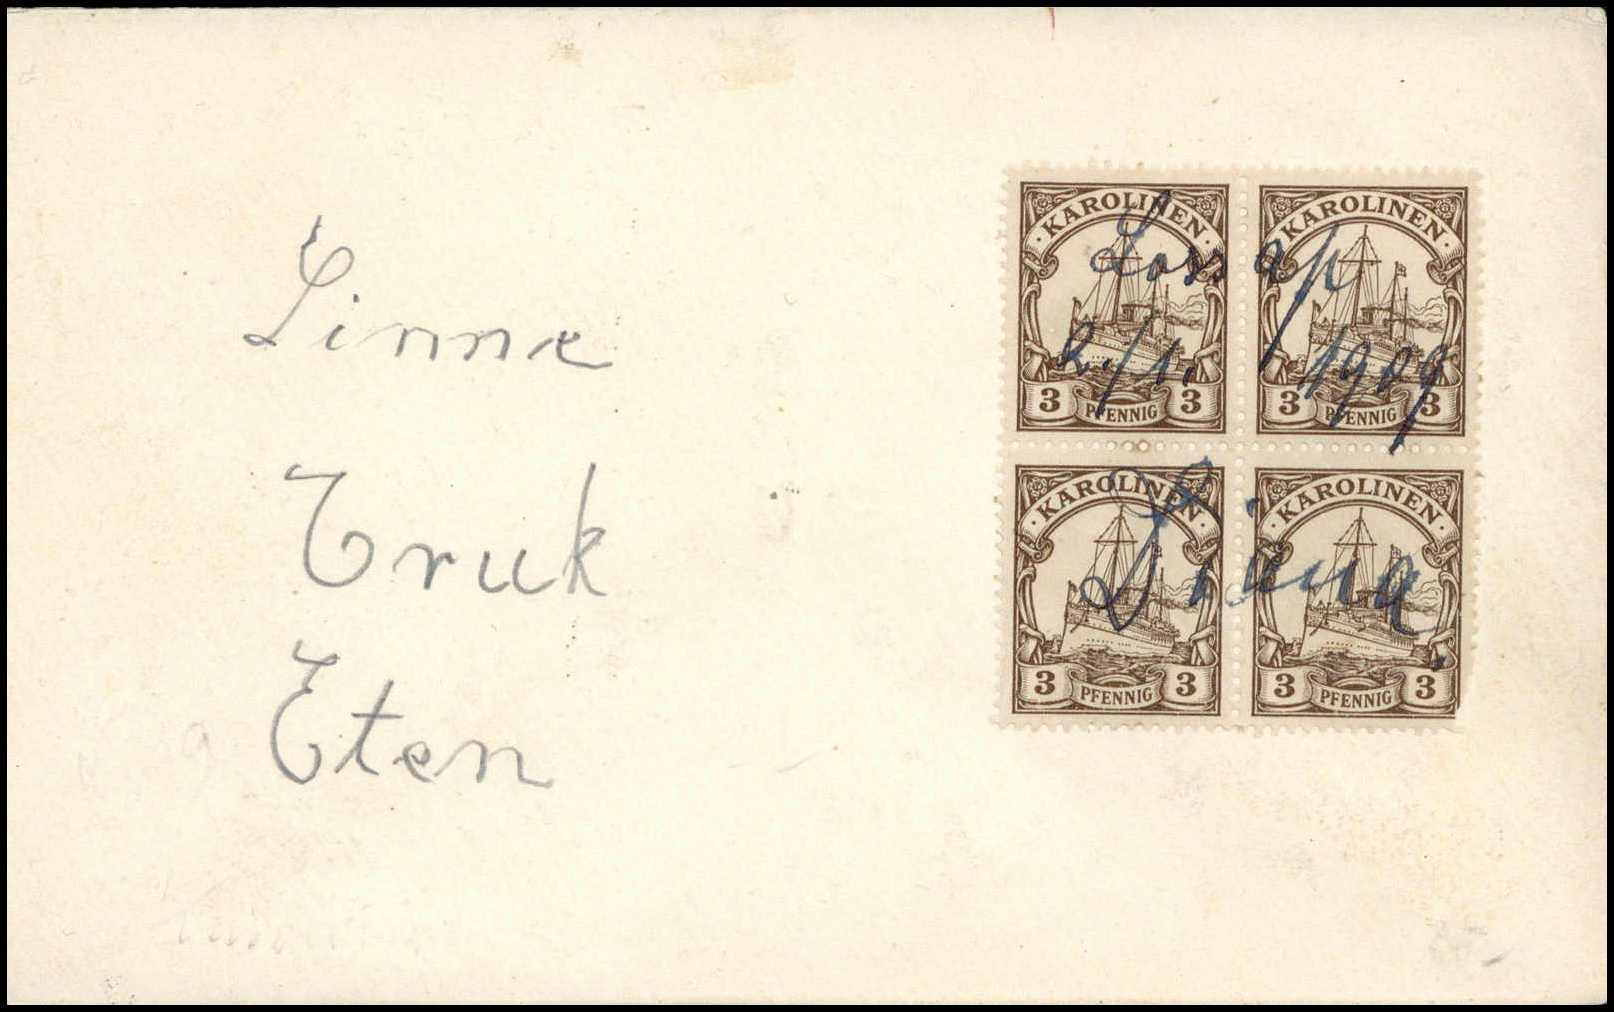 Linne
Truk
Eten
KAROLINEN KAROLINEN
Lossap
2./1. 1909
3 PFENNIG 3 3 PFENNIG 3
KAROLINEN KAROLINEN
3 PFENNIG 3 3 PFENNIG 3